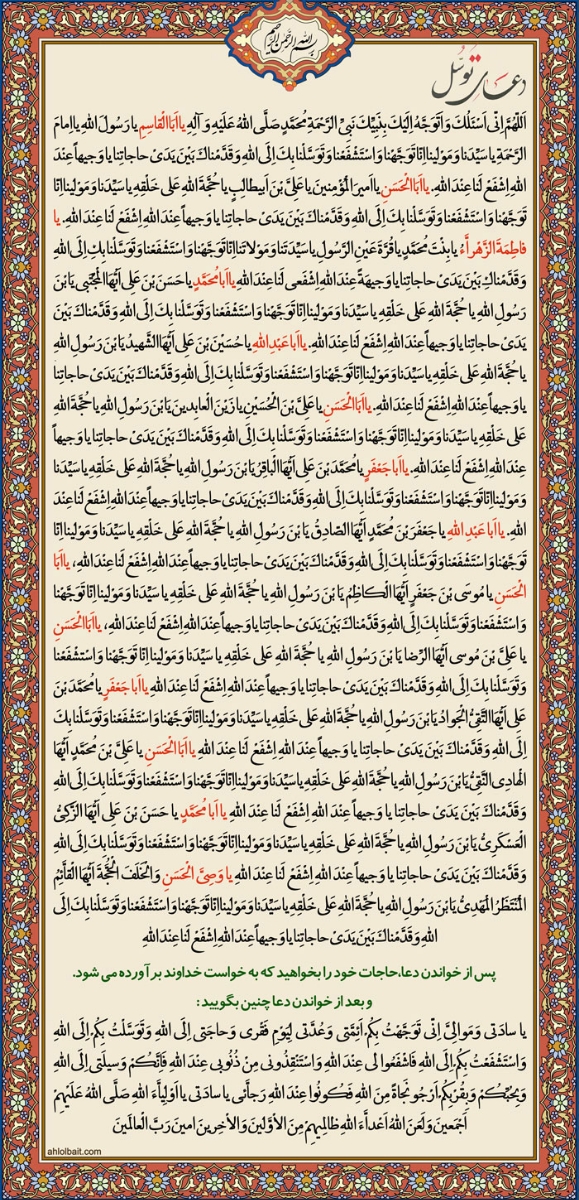 بسم الله الرحمن الرحیم
دعای توسل
اَللّهُمَّ اِنّی اَسْئَلُكَ وَ اَتَوَجَّهُ اِلَیْكَ بِنَبِیِّكَ نَبِیِّ الرَّحْمَةِ مُحَمَّدٍ صَلَّی اللهُ عَلَیْهِ وَ آلِهِ یا اَبَاالْقاسِمِ یا رَسُولَ اللهِ یا اِمامَ
الرَّحْمَةِ یا سَیِّدَنا وَ مَوْلینا اِنّا تَوَجَّهْنا وَ اسْتَشْفَعْنا وَ تَوَسَّلْنا بِكَ اِلَی اللهِ وَ قَدَّمْناكَ بَیْنَ یَدَیْ حاجاتِنا یا وَجیهاً عِنْدَ
اللهِ اِشْفَعْ لَنا عِنْدَ اللهِ. یا اَبَاالْحَسَنِ یا اَمیرَ الْمُؤْمِنینَ یا عَلِیَّ بْنَ اَبیطالِبٍ یا حُجَّةَ اللهِ عَلی خَلْقِهِ یا سَیِّدَنا وَ مَوْلینا اِنّا
تَوَجَّهْنا وَ اسْتَشْفَعْنا وَ تَوَسَّلْنا بِكَ اِلَی اللهِ وَ قَدَّمْناكَ بَیْنَ یَدَیْ حاجاتِنا یا وَجیهاً عِنْدَ اللهِ اِشْفَعْ لَنا عِنْدَ اللهِ. یا
فاطِمَةَ الزَّهْراَّءُ یا بِنْتَ مُحَمَّدٍ یا قُرَّةَ عَیْنِ الرَّسُولِ یا سَیِّدَتَنا وَ مَوْلاتَنا اِنّا تَوَجَّهْنا وَ اسْتَشْفَعْنا وَ تَوَسَّلْنا بِكِ اِلَی اللهِ
وَ قَدَّمْناكِ بَیْنَ یَدَیْ حاجاتِنا یا وَجیهَةً عِنْدَ اللهِ اِشْفَعی لَنا عِنْدَ اللهِ یا اَبا مُحَمَّدٍ یا حَسَنَ بْنَ عَلِیٍّ اَیُّهَا الْمُجْتَبی یَابْنَ
رَسُولِ اللهِ یا حُجَّةَ اللهِ عَلی خَلْقِهِ یا سَیِّدَنا وَ مَوْلینا اِنّا تَوَجَّهْنا وَ اسْتَشْفَعْنا وَ تَوَسَّلْنا بِكَ اِلَی اللهِ وَ قَدَّمْناكَ بَیْنَ
یَدَیْ حاجاتِنا یا وَجیهاً عِنْدَ اللهِ اِشْفَعْ لَنا عِنْدَ اللهِ. یا اَبا عَبْدِ اللهِ یا حُسَیْنَ بْنَ عَلِیٍّ اَیُّهَا الشَّهیدُ یَابْنَ رَسُولِ اللهِ
یا حُجَّةَ اللهِ عَلی خَلْقِهِ یا سَیِّدَنا وَ مَوْلینا اِنّا تَوَجَّهْنا وَ اسْتَشْفَعْنا وَ تَوَسَّلْنا بِكَ اِلَی اللهِ وَ قَدَّمْناكَ بَیْنَ یَدَیْ حاجاتِنا
یا وَجیهاً عِنْدَ اللهِ اِشْفَعْ لَنا عِنْدَ اللهِ. یا اَبَاالْحَسَنِ یا عَلِیَّ بْنَ الْحُسَیْنِ یا زَیْنَ الْعابِدینَ یَابْنَ رَسُولِ اللهِ یا حُجَّةَ اللهِ
عَلی خَلْقِهِ یا سَیِّدَنا وَ مَوْلینا اِنّا تَوَجَّهْنا وَ اسْتَشْفَعْنا وَ تَوَسَّلْنا بِكَ اِلَی اللهِ وَ قَدَّمْناكَ بَیْنَ یَدَیْ حاجاتِنا یا وَجیهاً
عِنْدَ اللهِ اِشْفَعْ لَنا عِنْدَ اللهِ. یا اَبا جَعْفَرٍ یا مُحَمَّدَ بْنَ عَلِیٍّ اَیُّهَا الْباقِرُ یَابْنَ رَسُولِ اللهِ یا حُجَّةَ اللهِ عَلی خَلْقِهِ یا سَیِّدَنا
وَ مَوْلینا اِنّا تَوَجَّهْنا وَ اسْتَشْفَعْنا وَ تَوَسَّلْنا بِكَ اِلَی اللهِ وَ قَدَّمْناكَ بَیْنَ یَدَیْ حاجاتِنا یا وَجیهاً عِنْدَ اللهِ اِشْفَعْ لَنا عِنْدَ
اللهِ. یا اَبا عَبْدِ اللهِ یا جَعْفَرَ بْنَ مُحَمَّدٍ اَیُّهَا الصّادِقُ یَابْنَ رَسُولِ اللهِ یا حُجَّةَ اللهِ عَلی خَلْقِهِ یا سَیِّدَنا وَ مَوْلینا اِنّا
تَوَجَّهْنا وَ اسْتَشْفَعْنا وَ تَوَسَّلْنا بِكَ اِلَی اللهِ وَ قَدَّمْناكَ بَیْنَ یَدَیْ حاجاتِنا یا وَجیهاً عِنْدَ اللهِ اِشْفَعْ لَنا عِنْدَ اللهِ، یا اَبَا
الْحَسَنِ یا مُوسَی بْنَ جَعْفَرٍ اَیُّهَا الْكاظِمُ یَابْنَ رَسُولِ اللهِ یا حُجَّةَ اللهِ عَلی خَلْقِهِ یا سَیِّدَنا وَ مَوْلینا اِنّا تَوَجَّهْنا
وَ اسْتَشْفَعْنا وَ تَوَسَّلْنا بِكَ اِلَی اللهِ وَ قَدَّمْناكَ بَیْنَ یَدَیْ حاجاتِنا یا وَجیهاً عِنْدَ اللهِ اِشْفَعْ لَنا عِنْدَ اللهِ، یا اَبَاالْحَسَنِ
یا عَلِیَّ بْنَ مُوسی اَیُّهَا الرِّضا یَابْنَ رَسُولِ اللهِ یا حُجَّةَ اللهِ عَلی خَلْقِهِ یا سَیِّدَنا وَ مَوْلینا اِنّا تَوَجَّهْنا وَ اسْتَشْفَعْنا
وَ تَوَسَّلْنا بِكَ اِلَی اللهِ وَ قَدَّمْناكَ بَیْنَ یَدَیْ حاجاتِنا یا وَجیهاً عِنْدَ اللهِ اِشْفَعْ لَنا عِنْدَ اللهِ یا اَبا جَعْفَرٍ یا مُحَمَّدَ بْنَ
عَلِیٍّ اَیُّهَا التَّقِیُّ الْجَوادُ یَابْنَ رَسُولِ اللهِ یا حُجَّةَ اللهِ عَلی خَلْقِهِ یا سَیِّدَنا وَ مَوْلینا اِنّا تَوَجَّهْنا وَ اسْتَشْفَعْنا وَ تَوَسَّلْنا بِكَ
اِلَی اللهِ وَ قَدَّمْناكَ بَیْنَ یَدَیْ حاجاتِنا یا وَجیهاً عِنْدَ اللهِ اِشْفَعْ لَنا عِنْدَ اللهِ یا اَبَاالْحَسَنِ یا عَلِیَّ بْنَ مُحَمَّدٍ اَیُّهَا
الْهادِی النَّقِیُّ یَابْنَ رَسُولِ اللهِ یا حُجَّةَ اللهِ عَلی خَلْقِهِ یا سَیِّدَنا وَ مَوْلینا اِنّا تَوَجَّهْنا وَ اسْتَشْفَعْنا وَ تَوَسَّلْنا بِكَ اِلَی اللهِ
وَ قَدَّمْناكَ بَیْنَ یَدَیْ حاجاتِنا یا وَجیهاً عِنْدَ اللهِ اِشْفَعْ لَنا عِنْدَ اللهِ یا اَبا مُحَمَّدٍ یا حَسَنَ بْنَ عَلِیٍّ اَیُّهَا الزَّكِیُّ
الْعَسْكَرِیُّ یَابْنَ رَسُولِ اللهِ یا حُجَّةَ اللهِ عَلی خَلْقِهِ یا سَیِّدَنا وَ مَوْلینا اِنّا تَوَجَّهْنا وَ اسْتَشْفَعْنا وَ تَوَسَّلْنا بِكَ اِلَی اللهِ
وَ قَدَّمْناكَ بَیْنَ یَدَیْ حاجاتِنا یا وَجیهاً عِنْدَ اللهِ اِشْفَعْ لَنا عِنْدَ اللهِ یا وَصِیَّ الْحَسَنِ وَ الْخَلَفَ الْحُجَّةَ اَیُّهَا الْقاَّئِمُ
الْمُنْتَظَرُ الْمَهْدِیُّ یَابْنَ رَسُولِ اللهِ یا حُجَّةَ اللهِ عَلی خَلْقِهِ یا سَیِّدَنا وَ مَوْلینا اِنّا تَوَجَّهْنا وَ اسْتَشْفَعْنا وَ تَوَسَّلْنا بِكَ اِلَی
اللهِ وَ قَدَّمْناكَ بَیْنَ یَدَیْ حاجاتِنا یا وَجیهاً عِنْدَ اللهِ اِشْفَعْ لَنا عِنْدَ اللهِ
پس از خواندن دعا، حاجات خود را بخواهید که به خواست خداوند برآورده می شود.
و بعد از خواندن دعا چنین بگویید:
یا سادَتی وَ مَوالِیَّ اِنّی تَوَجَّهْتُ بِكُمْ اَئِمَّتی وَ عُدَّتی لِیَوْمِ فَقْری وَ حاجَتی اِلَی اللهِ وَ تَوَسَّلْتُ بِكُمْ اِلَی اللهِ
وَ اسْتَشْفَعْتُ بِكُمْ اِلَی اللهِ فَاشْفَعُوا لی عِنْدَ اللهِ وَ اسْتَنْقِذُونی مِنْ ذُنُوبی عِنْدَ اللهِ فَاِنَّكُمْ وَسیلَتی اِلَی اللهِ
وَ بِحُبِّكُمْ وَ بِقُرْبِكُمْ اَرْجُو نَجاةً مِنَ اللهِ فَكُونُوا عِنْدَ اللهِ رَجاَّئی یا سادَتی یا اَوْلِیاَّءَ اللهِ صَلَّی اللهُ عَلَیْهِمْ
اَجْمَعینَ وَ لَعَنَ اللهُ اَعْداَّءَ اللهِ ظالِمیهِمْ مِنَ الْاَوَّلینَ وَ الْاخِرینَ امینَ رَبَّ الْعالَمینَ
ahlolbait.com